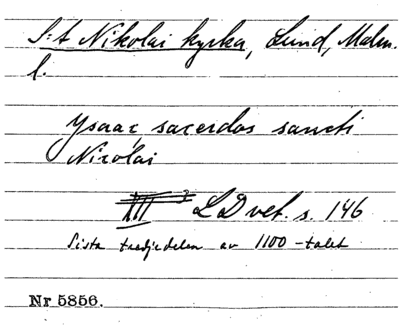 S:t Nikolai kyrka, Lund, Malm.
l.
Ysaac, sacerdos sancti
Nicolai
LD vet. s. 146
Sista tredjedelen av 1100-talet
Nr 5856.